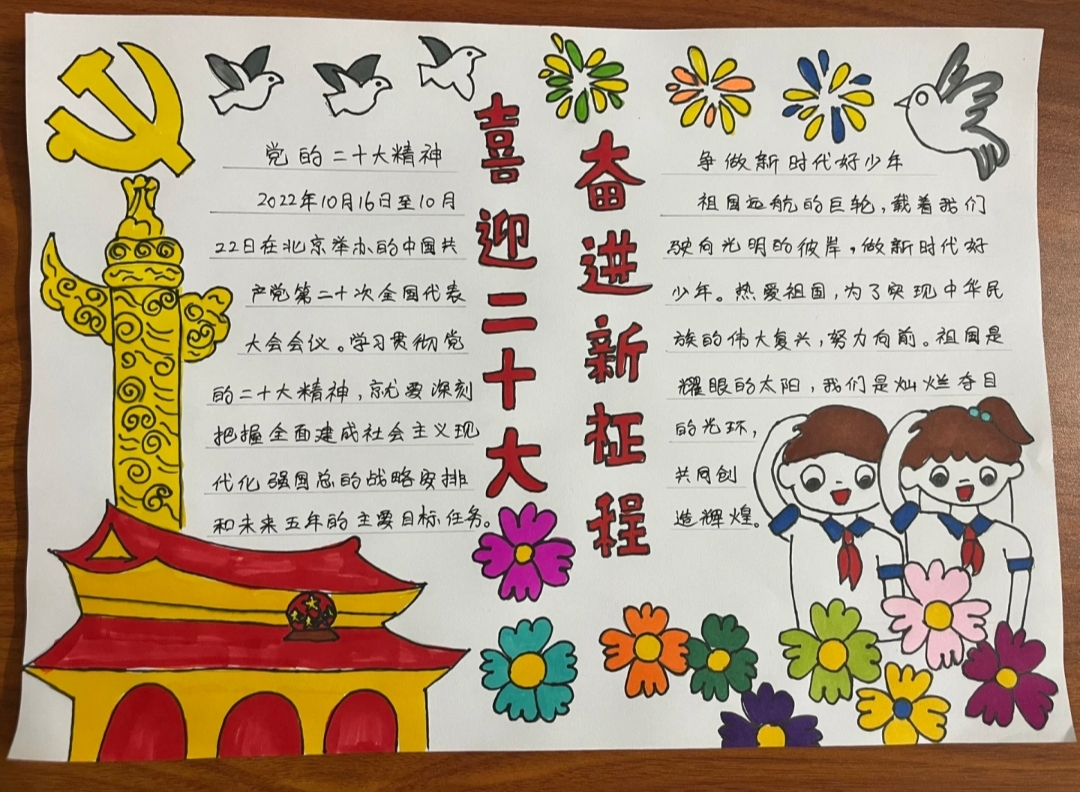 喜迎二十大
奋进新征程
党的二十大精神
2022年10月16日至10月
22日在北京举办的中国共
产党第二十次全国代表
大会会议。学习贯彻党
的二十大精神，就要深刻
把握全面建成社会主义现
代化强国总的战略安排
和未来五年的主要目标任务。
争做新时代好少年
祖国远航的巨轮，载着我们
驶向光明的彼岸，做新时代好
少年。热爱祖国，为了实现中华民
族的伟大复兴，努力向前。祖国是
耀眼的太阳，我们是灿烂夺目
的光环，
共同创
造辉煌。